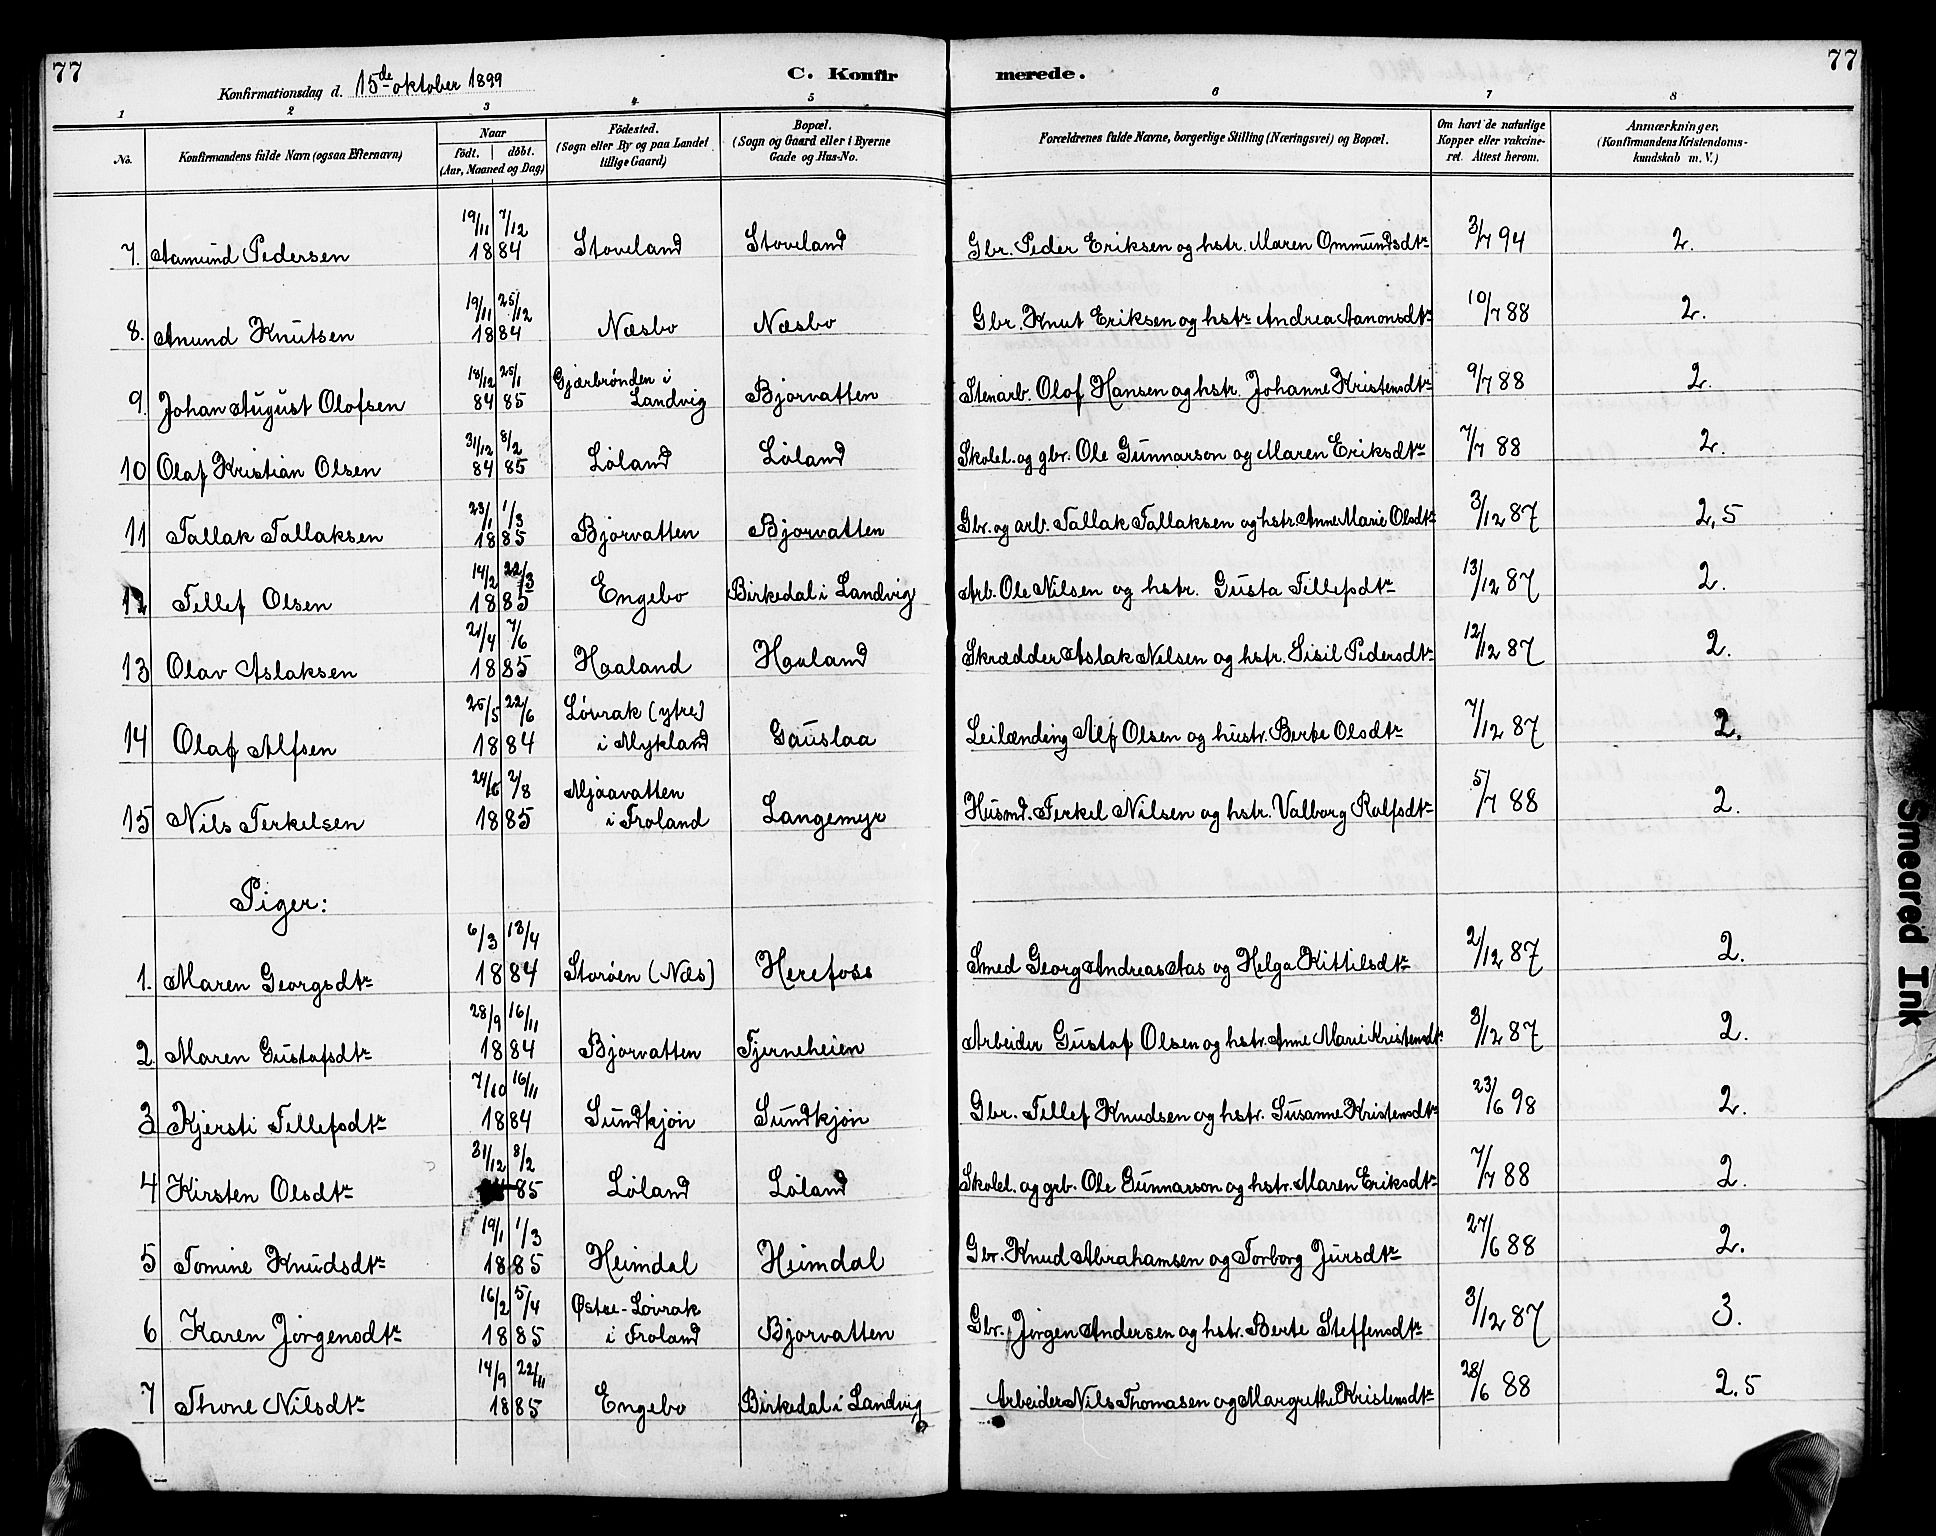 77
77
Konfirmationsdag d. 15de oktober 1899
C. Konfir
merede.
1 2 3 4 5 6 7 8
No.
Konfirmandens fulde Navn (ogsaa Efternavn)
Naar
födt. | döbt.
(Aar, Maaned og Dag)
Födested.
(Sogn eller By og paa Landet
tillige Gaard)
Bopæl.
(Sogn og Gaard eller i Byerne
Gade og Hus-No.
Forældrenes fulde Navne, borgerlige Stilling (Næringsvei) og Bopæl.
Om havt de naturlige
Kopper eller vakcine-
ret. Attest herom.
Anmærkninger.
(Konfirmandens Kristendoms-
kundskab m. V.)
19/11 7/12
7. Aamund Pedersen 1884 Stoveland Stoveland Gbr. Peder Eriksen og hstr. Maren Ommundsdtr 3/7 94 2.
19/11 25/12
8. Anund Knutsen 1884 Næsbo Næsbo Gbr. Knut Eriksen og hstr Andrea Aanonsdtr 10/7 88 2.
18/12 25/1 Gjærbrønden i
9. Johan August Olofsen 84 85 Landvig Bjorvatten Stenarb. Olof Hansen og hstr. Johanne Kristensdtr 9/7 88 2.
31/12 8/2
10 Olaf Kristian Olsen 84 85 Løland Løland Skolel. og gbr. Ole Gunnarson og Maren Eriksdtr 7/7 88 2.
23/1 1/3
11 Tallak Tallaksen 1885 Bjorvatten Bjorvatten Gbr. og arb. Tallak Tallaksen og hstr Anne Marie Olsdtr 3/12 87 2,5
14/2 22/3
12 Tellef Olsen 1885 Engebo Birkedal i Landvig Arb. Ole Nilsen og hstr. Gusta Tellefsdtr 13/12 87 2.
21/4 7/6
13 Olav Aslaksen 1885 Haaland Haaland Skrædder Aslak Nilsen og hstr. Sisil Pedersdtr 12/12 87 2.
25/5 22/6 Løvrak (ytre)
14 Olaf Alfsen 1884 i Mykland Gauslaa Leilænding Alf Olsen og hustr. Berte Olsdtr 7/12 87 2.
24/6 2/8 Mjaavatten
15 Nils Terkelsen 1885 i Froland Langemyr Husmd. Terkel Nilsen og hstr. Valborg Rolfsdtr 5/7 88 2.
Piger:
6/3 13/4
1. Maren Georgsdtr 1884 Storøen (Næs) Herefoss Smed Georg Andreas Aas og Helga Kittilsdtr 2/12 87 2.
28/9 16/11
2 Maren Gustafsdtr 1884 Bjorvatten Tjerneheien Arbeider Gustaf Olsen og hstr. Anne Marie Kristensdtr 3/12 87 2.
7/10 16/11
3 Kjersti Tellefsdtr 1884 Sundkjøn Sundkjøn Gbr. Tellef Knudsen og hstr. Susanne Kristensdtr 23/6 98 2.
31/12 8/2
4 Kirsten Olsdtr 85 Løland Løland Skolel. og grb. Ole Gunnarson og hstr. Maren Eriksdtr 7/7 88 2.
19/1 1/3
5 Tomine Knudsdtr 1885 Heimdal Heimdal Gbr. Knud Abrahamsen og Torborg Jursdtr 27/6 88 2.
16/2 5/4 Østre-Løvrak
6 Karen Jørgensdtr 1885 i Froland Bjorvatten Gbr. Jørgen Andersen og hstr. Berte Steffensdtr 3/12 87 3.
14/9 22/11
7 Thone Nilsdtr 1885 Engebo Birkedal i Landvig Arbeider Nils Thomasen og Margrethe Kristensdtr 28/6 88 2.5
Smeared Ink